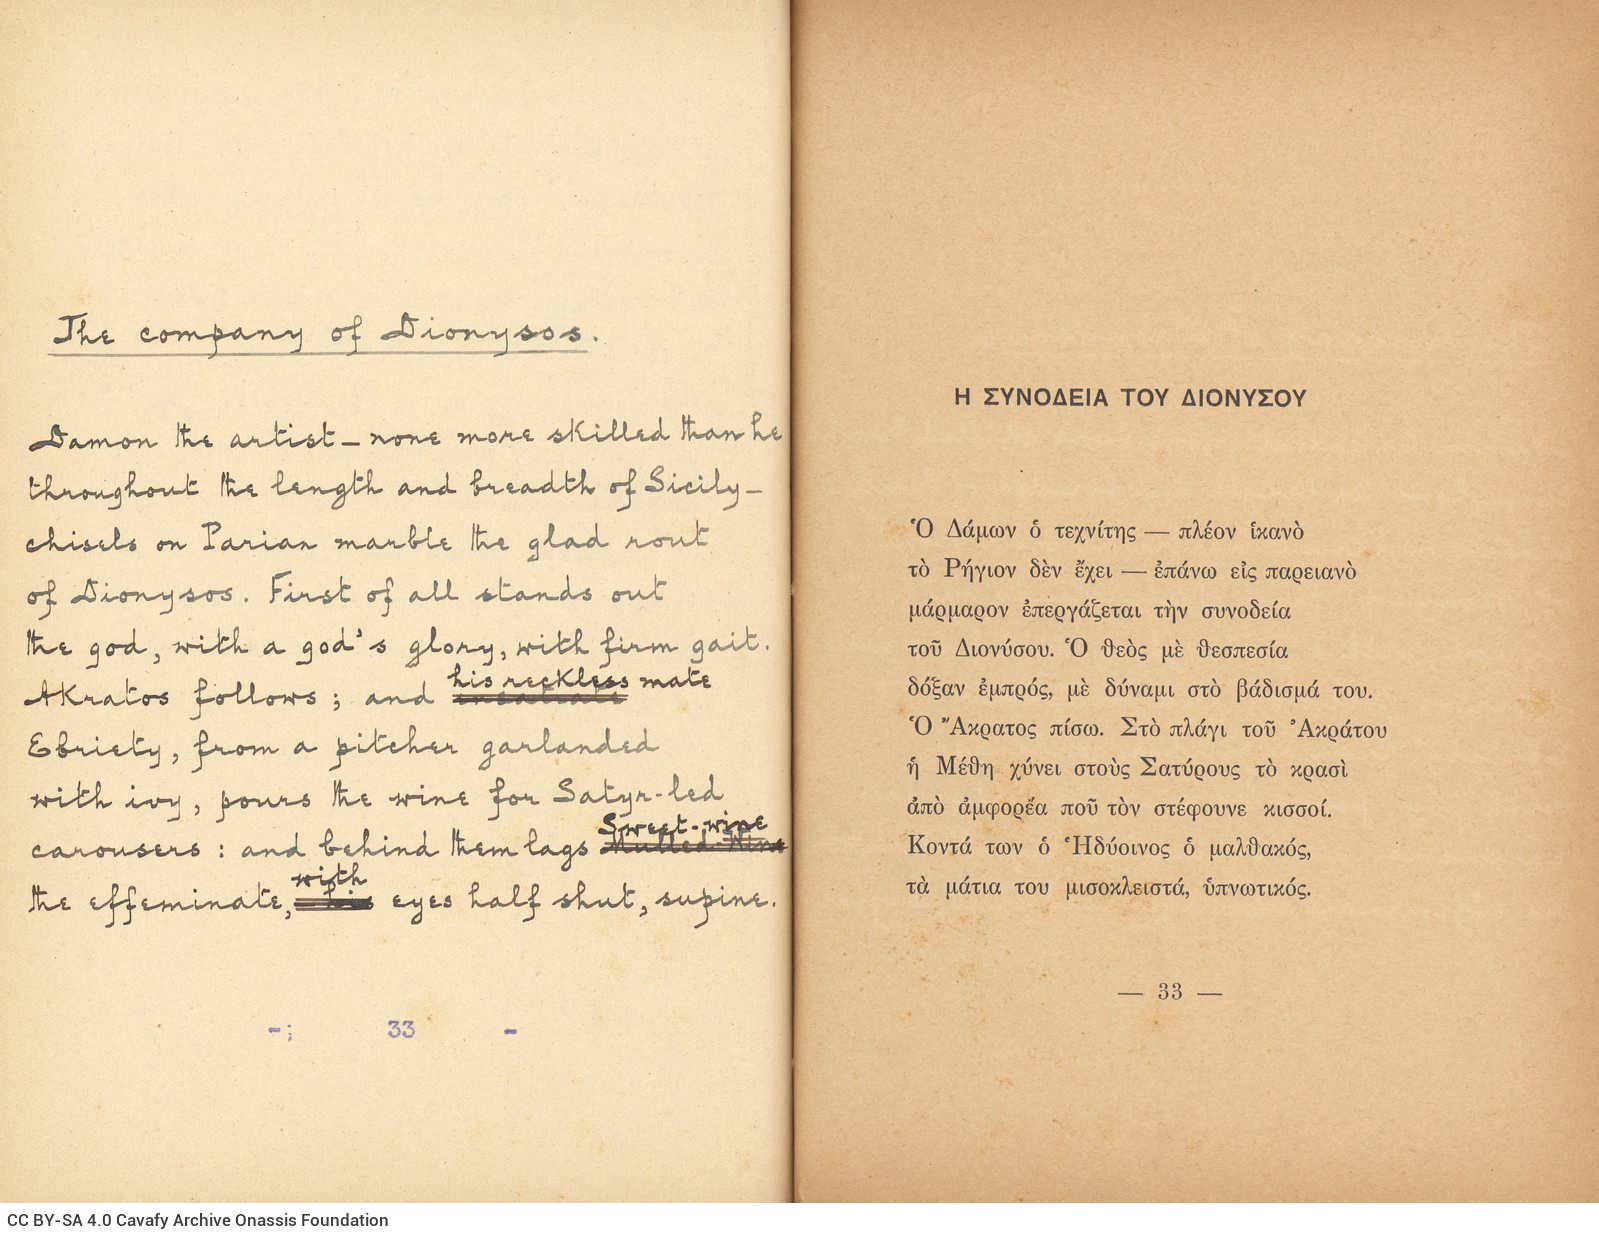 The company of Dionysos.
Damon the artist — none more skilled than he
throughout the length and breadth of Sicily —
chisels on Parian marble the glad rout
of Dionysos. First of all stands out
the god, with a god's glory, with firm gait.
his reckless mate
Akratos follows; and
Ebriety, from a pitcher garlanded
with ivy, pours the wine for Satyr-led
Sweet-wine
carousers: and behind them lags Mulled-Wine
with
the effeminate, his eyes half shut, supine.
-; 33 -
Η ΣΥΝΟΔΕΙΑ ΤΟΥ ΔΙΟΝΥΣΟΥ
Ὁ Δάμων ὁ τεχνίτης — πλέον ἱκανὸ
τὸ Ρήγιον δὲν ἔχει — ἐπάνω εἰς παρειανὸ
μάρμαρον ἐπεργάζεται τὴν συνοδεία
τοῦ Διονύσου. Ὁ θεὸς μὲ θεσπεσία
δόξαν ἐμπρός, μὲ δύναμι στὸ βάδισμά του.
Ὁ Ἄκρατος πίσω. Στὸ πλάγι τοῦ Ἀκράτου
ἡ Μέθη χύνει στοὺς Σατύρους τὸ κρασὶ
ἀπὸ ἀμφορέα ποῦ τὸν στέφουνε κισσοί.
Κοντά των ὁ Ἡδύοινος ὁ μαλθακός,
τὰ μάτια του μισοκλειστά, ὑπνωτικός.
— 33 —
CC BY-SA 4.0 Cavafy Archive Onassis Foundation